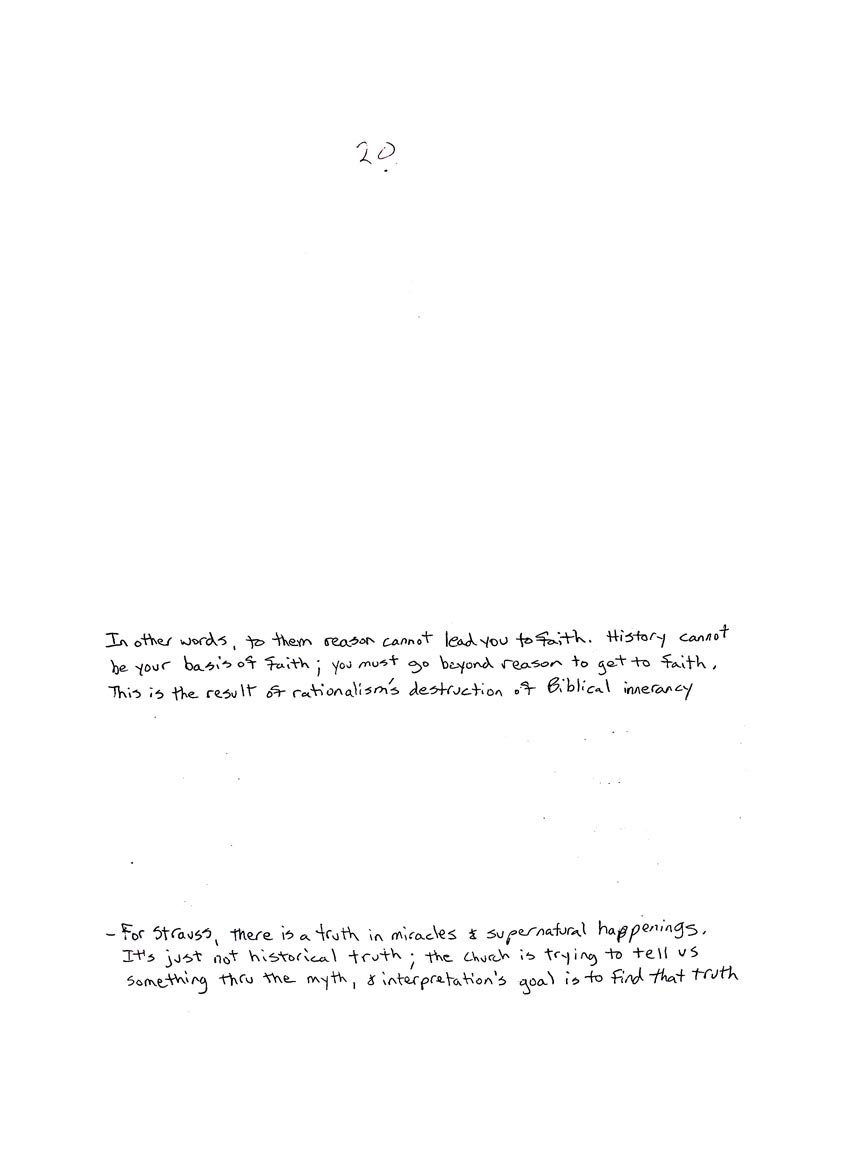 20
In other words, to them reason cannot lead you to faith. History cannot
be your basis of faith; you must go beyond reason to get to faith.
This is the result of rationalism's destruction of Biblical innerancy
- For Strauss, there is a truth in miracles & supernatural happenings.
It's just not historical truth; the church is trying to tell us
something thru the myth, & interpretation's goal is to find that truth